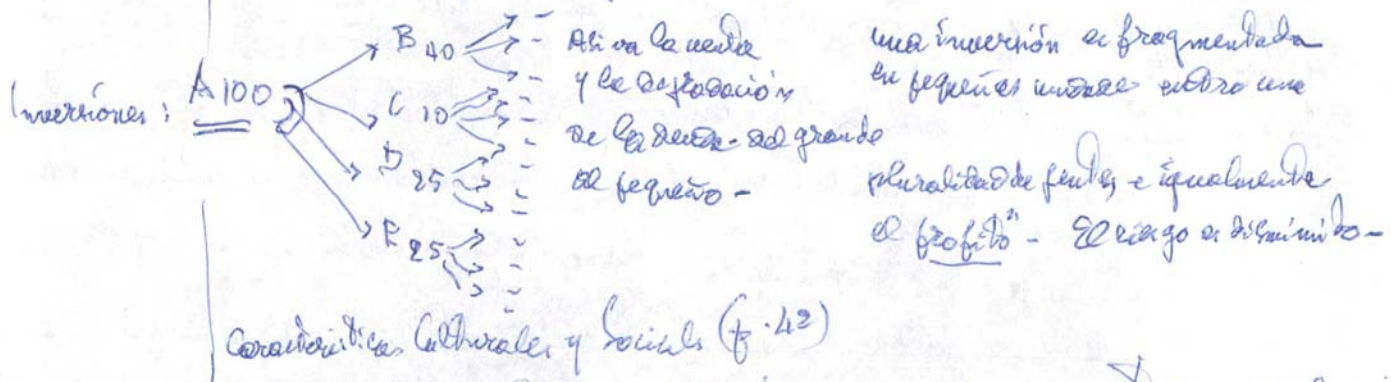 Inversiones: A 100
B 40
C 10
D 25
E 25
Así va la venta
y la
de la deuda - del grande
al pequeño -
una inversión es fragmentada
en pequeñas entre una
pluralidad de gentes, e igualmente
el "profito" - El riesgo es disminuido -
Características Culturales y Sociales (p. 42)